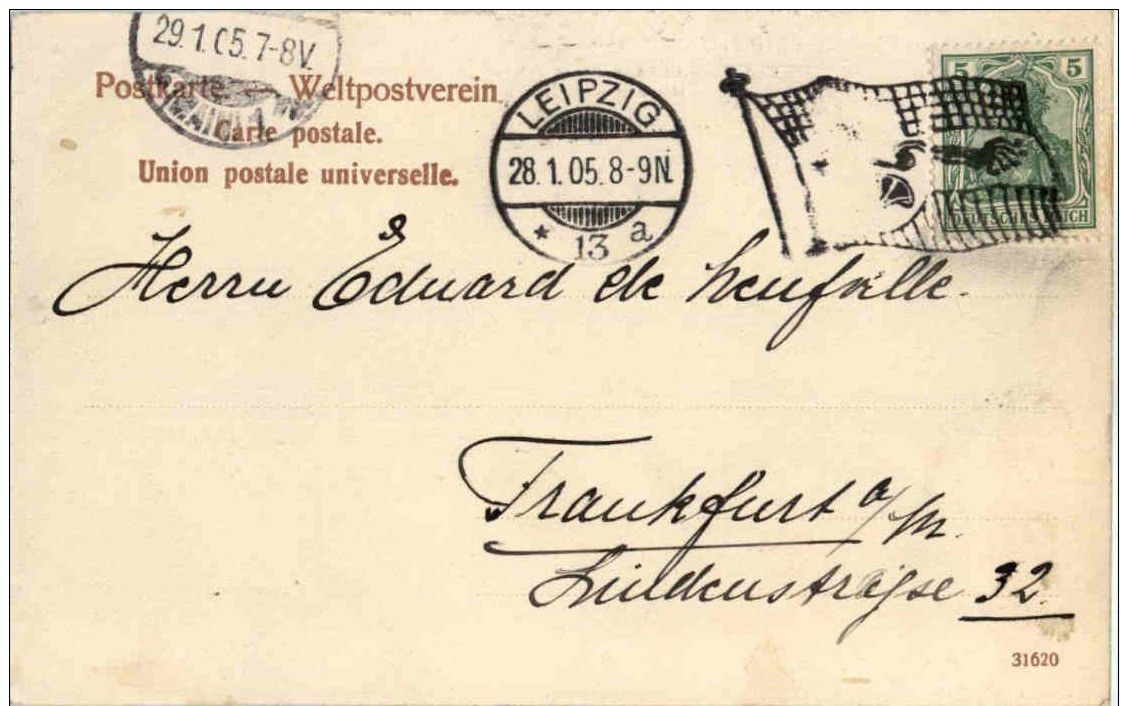 29.1.05.7-8V.
Postkarte — Weltpostverein
Carte postale.
Union postale universelle.
LEIPZIG
28.1.05.8-9N.
* 13 a
5 5
DEUTSCHES REICH
Herrn Eduard de Neufville.
Frankfurt a/M.
Lindenstraße 32
31620